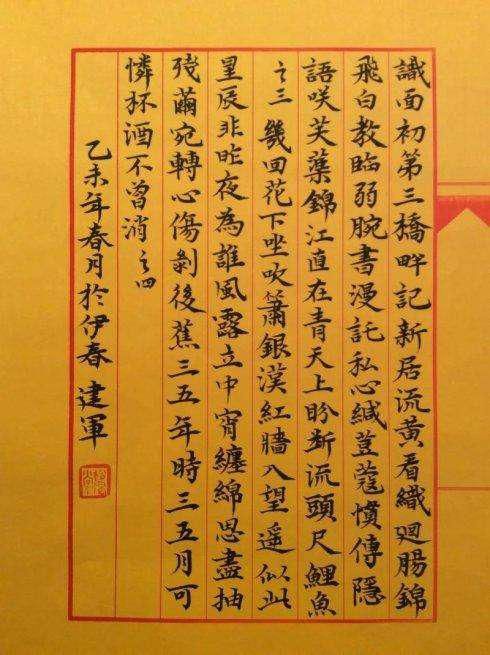 識面初第三橋畔記新居流黃看織迴腸錦
飛白教臨弱腕書漫託私心緘荳蔻慣傳隱
語咲芙蕖錦江直在青天上盼斷流頭尺鯉魚
之三 幾回花下坐吹簫銀漢紅牆入望遙似此
星辰非昨夜為誰風露立中宵纏綿思盡抽
殘繭宛轉心傷剝後蕉三五年時三五月可
憐杯酒不曾消 之四
乙未年春月於伊春 建軍